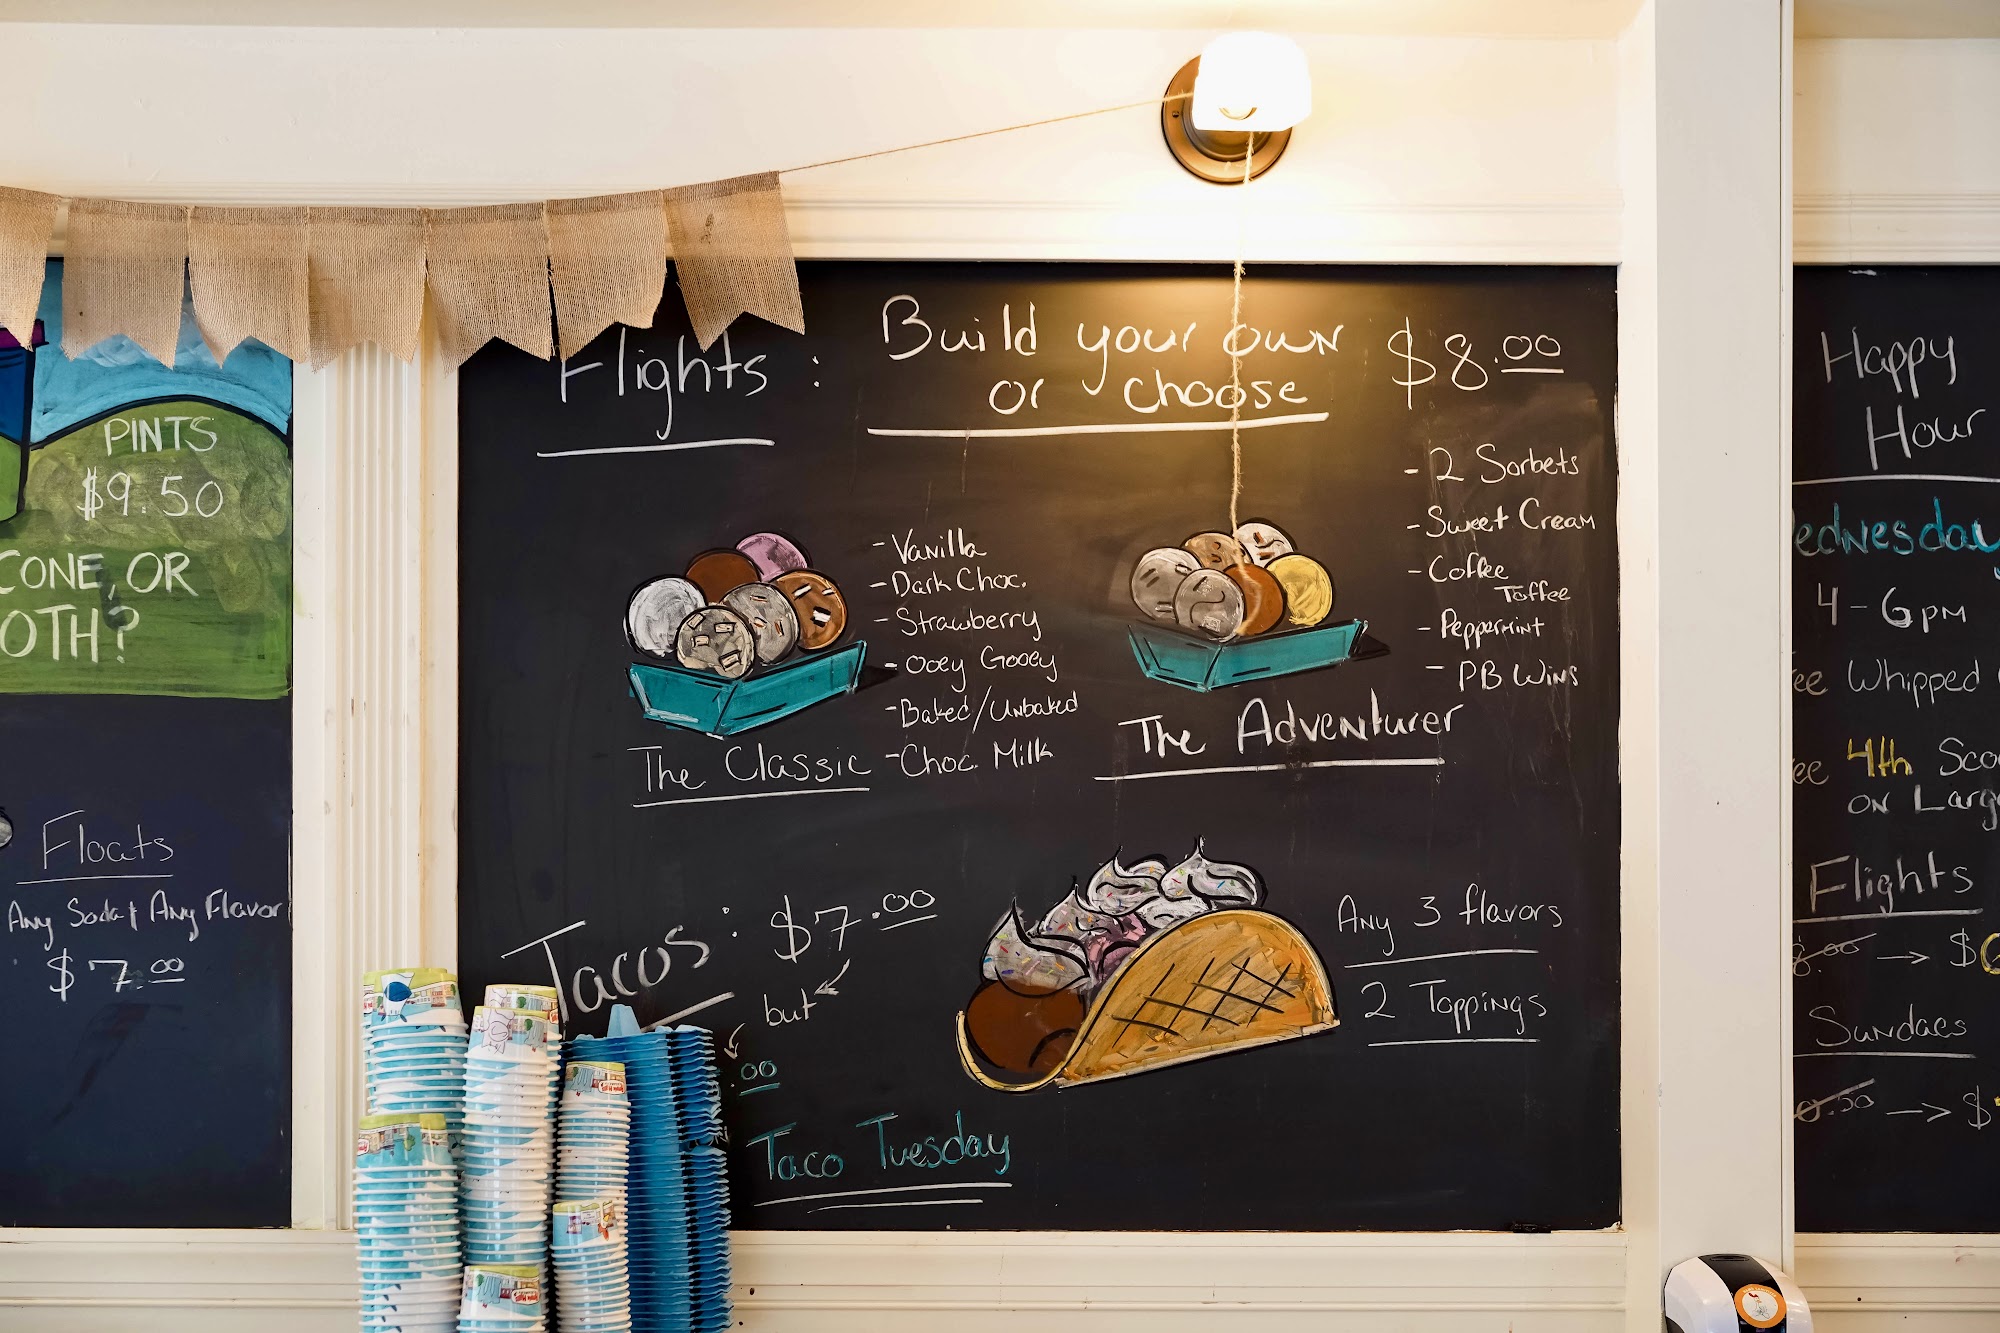 PINTS
$9.50
CONE, OR
OTH?
Floats
Any Soda & Any Flavor
$7.00
Flights :
Build your own
or choose
$8.00
- Vanilla
- Dark Choc.
- Strawberry
- Ooey Gooey
- Baked/Unbaked
- Choc. Milk
The Classic
- 2 Sorbets
- Sweet Cream
- Coffee
Toffee
- Peppermint
- PB Wins
The Adventurer
Tacos: $7.00
but
.00
Taco Tuesday
Any 3 flavors
2 Toppings
Happy
Hour
ednesday
4 - 6 pm
ee Whipped
ee 4th Sco
on Larg
Flights
8.00 → $6
Sundaes
0.50 → $